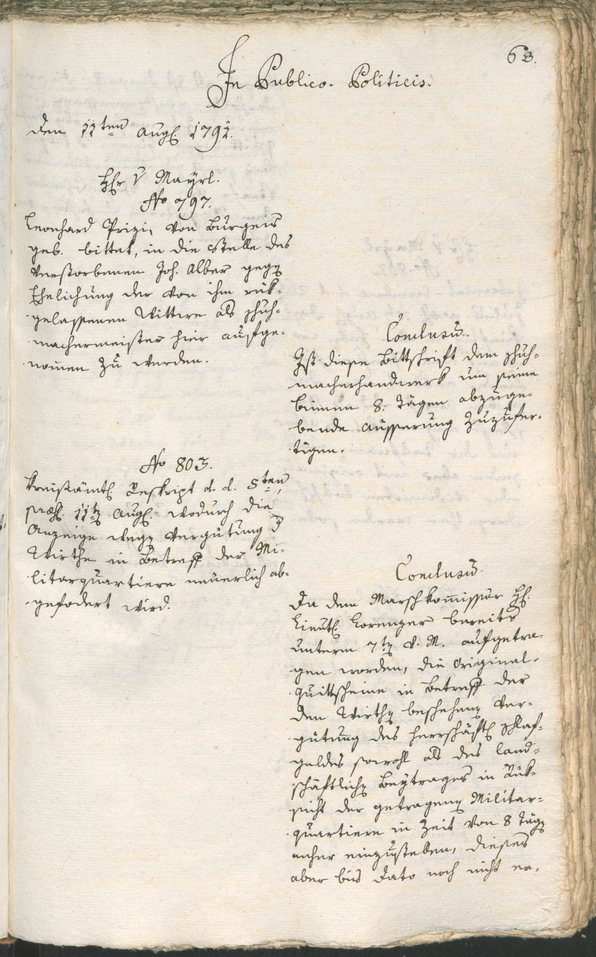 63.
In Publico. Politicis.
den 11ten Aug. 1792.
H. v Mayrl.
No 797.
Leonhard Prizi, von Burgeis
geb. bittet, in die Stelle des
verstorbenen Joh. Alber gegen
Ehelichung der von ihm rük-
gelassenen Wittwe als Schuh-
machermeister hier aufge-
nomen zu werden.
Conclusum.
Ist diese Bittschrift dem Schuh-
macherhandwerk um seine
binnen 8. Tägen abzuge-
bende Äusserung zuzufer-
tigen.
No 803.
Kreisämtl. Reskript d. d. 5ten
präs. 11ten Aug. wodurch die
Anzeige wegen Vergütung der
Wirthe in Betreff der Mi-
litarquartiere neuerlich ab-
gefodert wird.
Conclusum.
Da dem Marschkommissär H.
Lieut. Lorenzer bereits
unterm 7ten d. M. aufgetra-
gen worden, die Original-
quittscheine in Betreff der
den Wirthen beschehenen Ver-
gütung des herrschäftl. Schlaf-
geldes sowohl als des land-
schäftlichen Beytrages in Rük-
sicht der getragenen Militar-
quartiere in Zeit von 8 Tägen
anher einzusteben, dieses
aber bis dato noch nicht er-